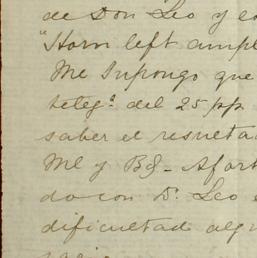 de Don Leo y es
"Horn left ampl
Me Supongo que
teleg.ª del 25 pp
saber el resulta
Ml y Bg- Afort
do con D. Leo e
dificultad alg